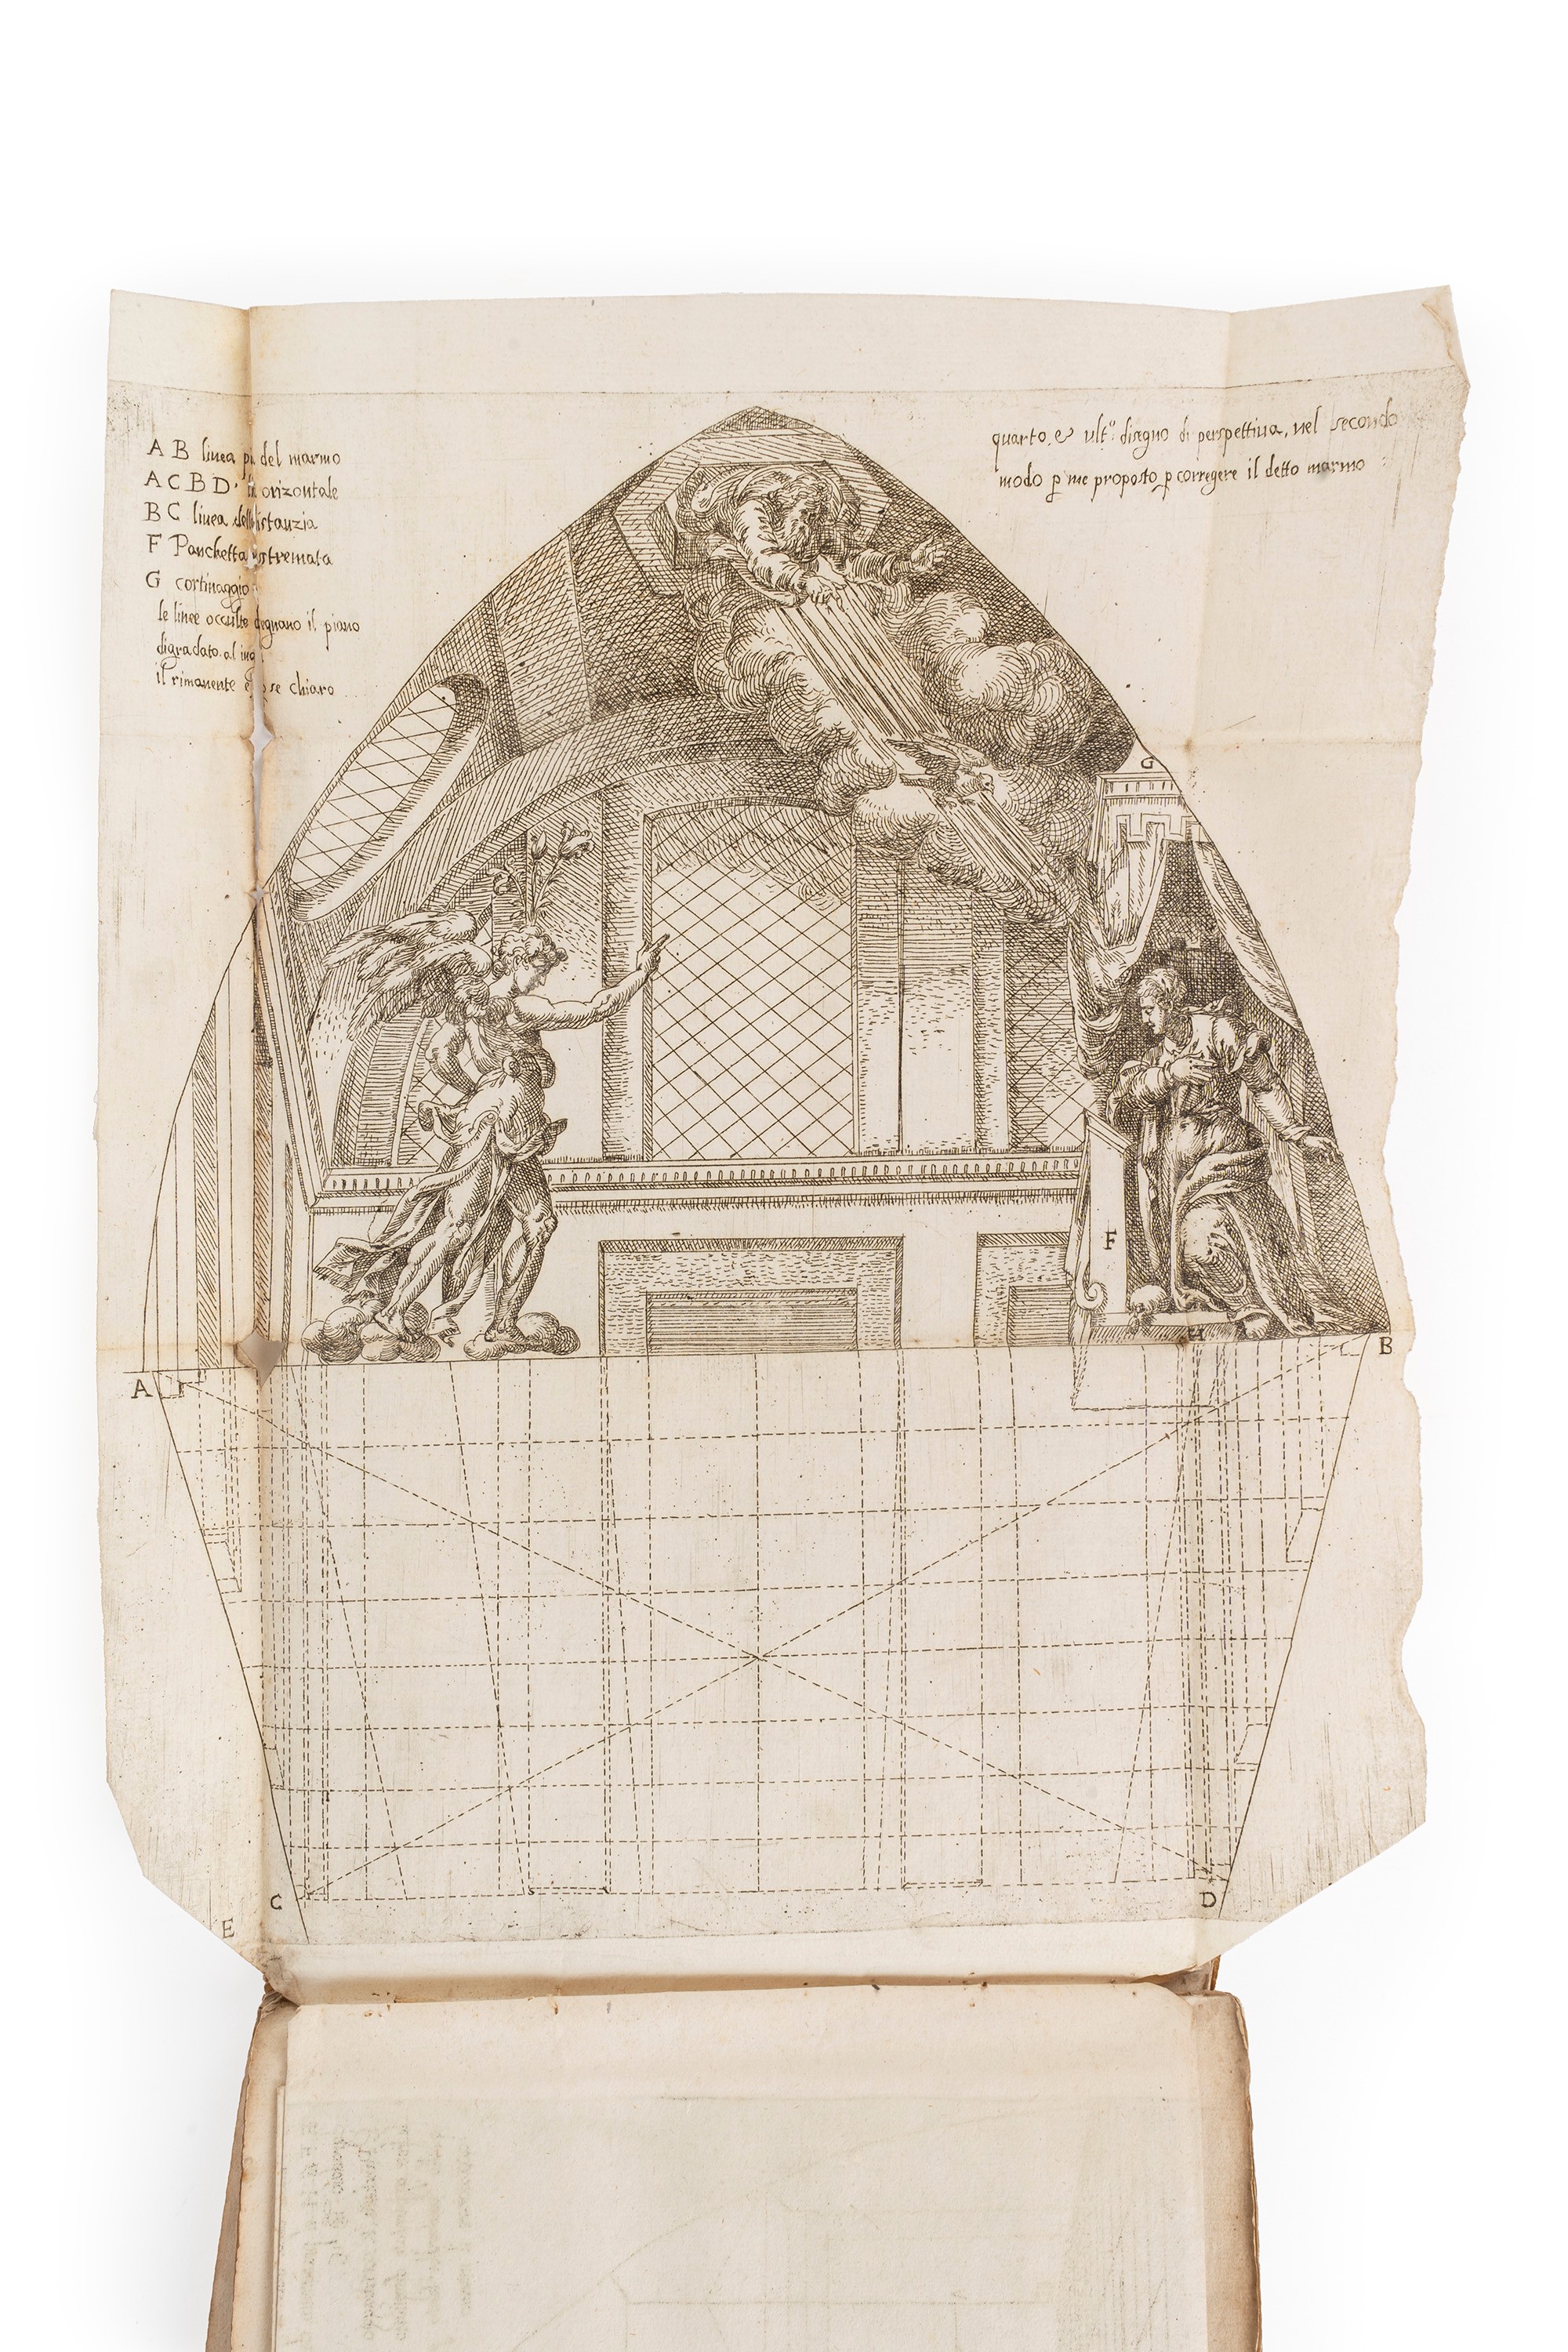 A B linea pn. del marmo
A C B D orizontale
B C linea della distanzia
F Panchetta estremata
G cortinaggio
le linee occulte degnano il piano
digradato. al
il rimanente chiaro
quarto, & ult.º disegno di perspettiua, nel secondo
modo p me proposto p corregere il detto marmo
G
F
H
A
B
C
D
E